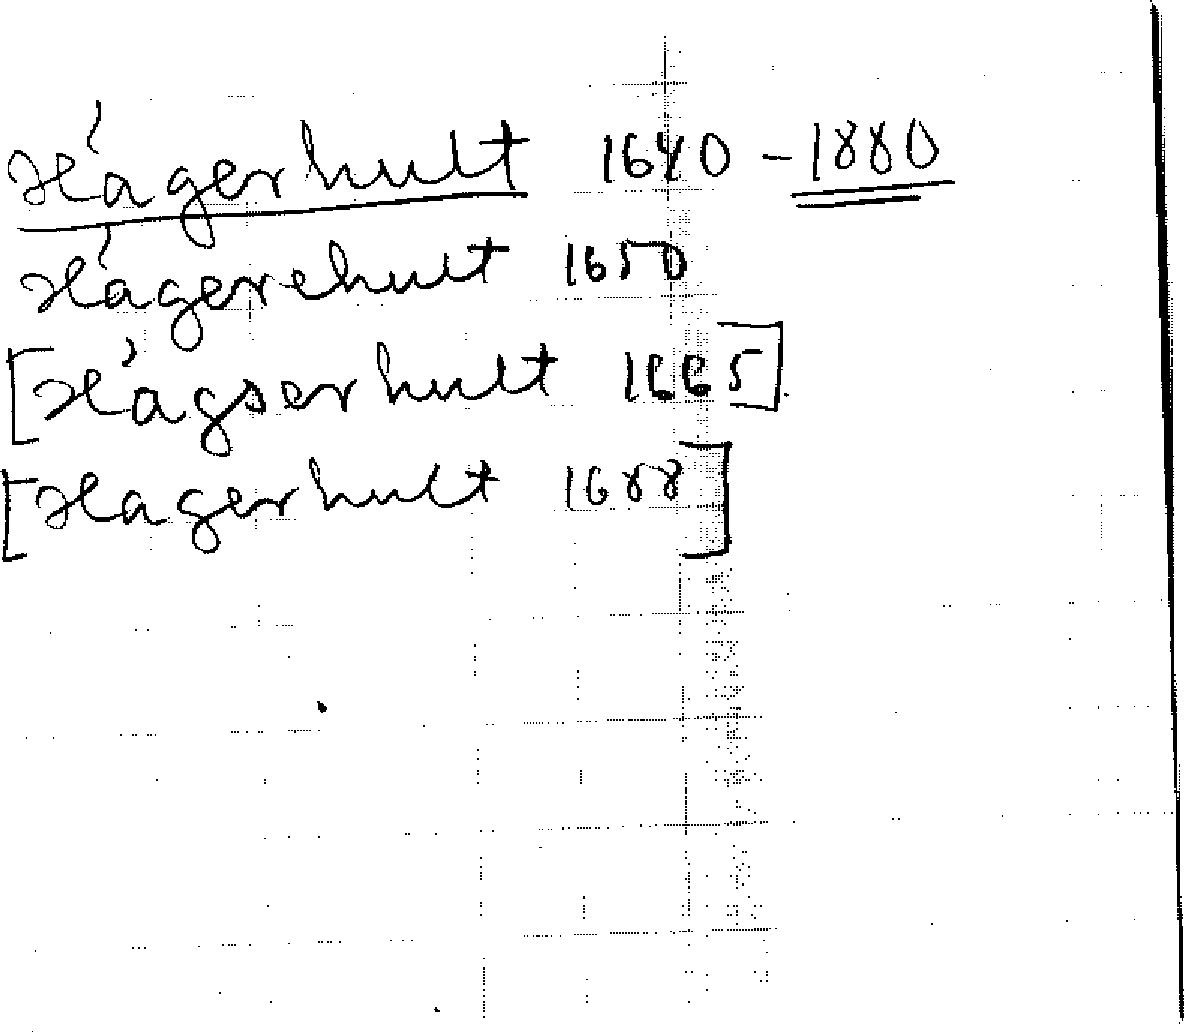 Hågerhult 1640 - 1880
Hågerehult 1650
[Hågserhult 1665]
[Hagerhult 1688]